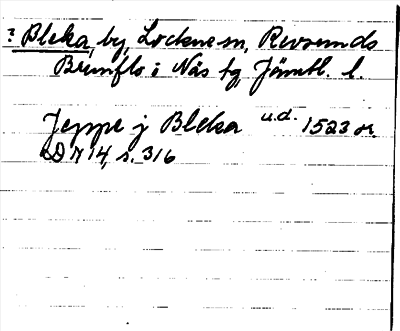 ? Bleka, by, Lockne sn, Revsunds
Brunflo i Näs tg, Jämtl. l.
Jeppe j Bleka u.d. 1523 or.
DN 14, s. 316